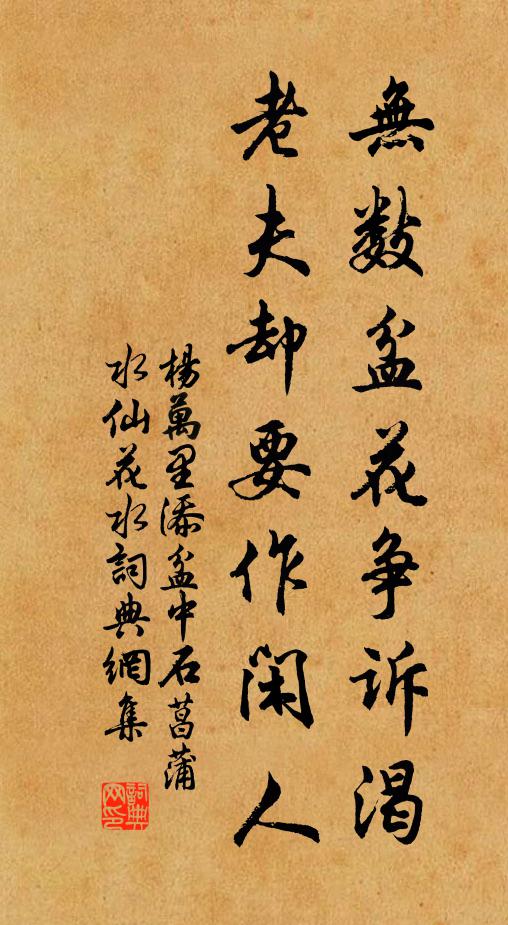 無數盆花争訴渴
老夫却要作閑人
楊萬里添盆中石菖蒲
水仙花水詞典網集
詞典网印